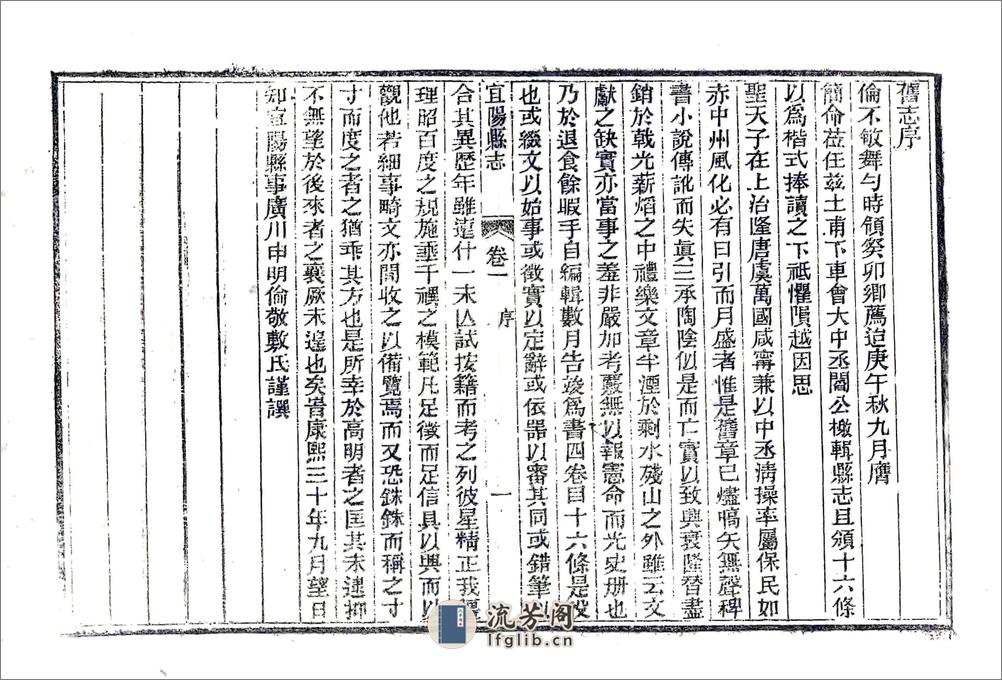 舊志序
倫不敏舞勺時領癸卯鄉薦迨庚午秋九月膺
簡命莅任兹土甫下車會大中丞閻公檄輯縣志且頒十六條
以爲楷式捧讀之下祗懼隕越因思
聖天子在上治隆唐虞萬國咸寧兼以中丞淸操率屬保民如
赤中州風化必有日引而月盛者惟是舊章已燼暠矢無聲稗
書小說傳訛而失眞三承陶陰似是而亡實以致興衰隆替盡
銷於戟光薪熖之中禮樂文章半湮於剩水殘山之外雖云文
獻之缺實亦當事之羞非嚴加考覈無以報憲命而光史册也
乃於退食餘暇手自編輯數月告竣爲書四卷目十六條是役
也或綴文以始事或徵實以定辭或依器以審其同或錯筆以
宜陽縣志
卷一
序
一
合其異歷年雖遠什一未亾試按籍而考之列彼星精正我疆
理昭百度之規施垂千禩之模範凡足徵而足信具以興而以
觀他若細事畸文亦間收之以備覽焉而又恐銖銖而稱之寸
寸而度之者之猶乖其方也是所幸於高明者之匡其未逮抑
不無望於後來者之襄厥未遑也矣旹康熙三十年九月望日
知宜陽縣事廣川申明倫敬敷氏謹譔
流芳阁
lfglib.cn